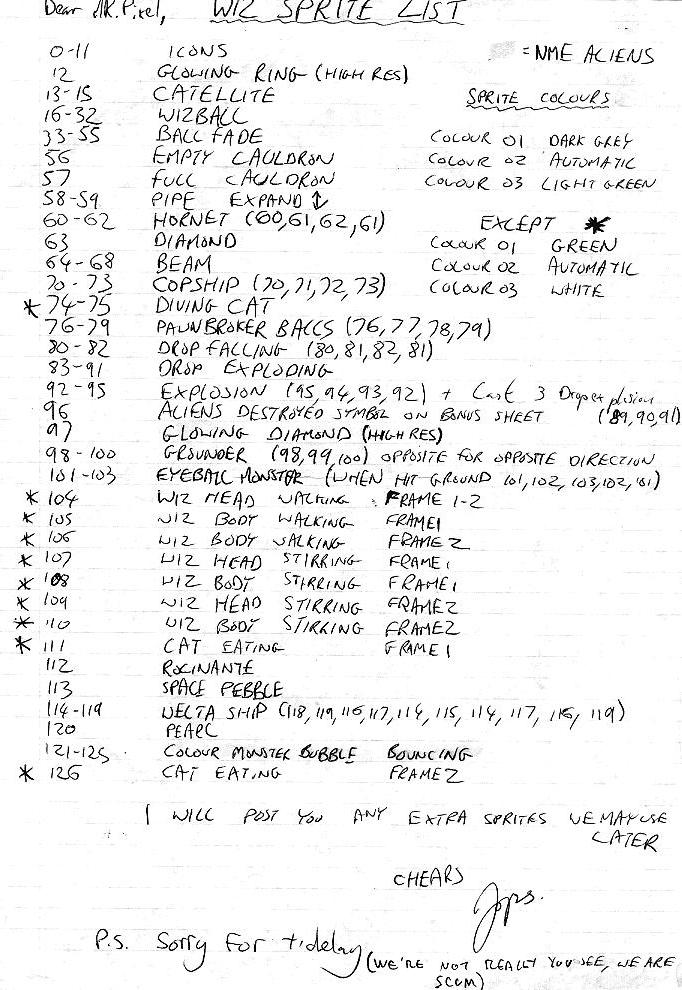 Dear MR. Pixel, WIZ SPRITE LIST
0-11 ICONS = NME ALIENS
12 GLOWING RING (HIGH RES)
13-15 CATELLITE SPRITE COLOURS
16-32 WIZBALL
33-55 BALL FADE COLOUR 01 DARK GREY
56 EMPTY CAULDRON COLOUR 02 AUTOMATIC
57 FULL CAULDRON COLOUR 03 LIGHT GREEN
58-59 PIPE EXPAND ↕
60-62 HORNET (60,61,62,61) EXCEPT *
63 DIAMOND COLOUR 01 GREEN
64-68 BEAM COLOUR 02 AUTOMATIC
70-73 COPSHIP (70,71,72,73) COLOUR 03 WHITE
* 74-75 DIVING CAT
76-79 PAWNBROKER BALLS (76,77,78,79)
80-82 DROP FALLING (80,81,82,81)
83-91 DROP EXPLODING
92-95 EXPLOSION (95,94,93,92) + Last 3 Drop explosion
96 ALIENS DESTROYED SYMBOL ON BONUS SHEET (89,90,91)
97 GLOWING DIAMOND (HIGH RES)
98-100 GROUNDER (98,99,100) OPPOSITE FOR OPPOSITE DIRECTION
101-103 EYEBALL MONSTER (WHEN HIT GROUND 101,102,103,102,101)
* 104 WIZ HEAD WALKING FRAME 1-2
* 105 WIZ BODY WALKING FRAME1
* 106 WIZ BODY WALKING FRAME2
* 107 WIZ HEAD STIRRING FRAME1
* 108 WIZ BODY STIRRING FRAME1
* 109 WIZ HEAD STIRRING FRAME2
* 110 WIZ BODY STIRRING FRAME2
* 111 CAT EATING FRAME1
112 ROCINANTE
113 SPACE PEBBLE
114-119 DELTA SHIP (118,119,116,117,114,115,114,117,116,119)
120 PEARL
121-125 COLOUR MONSTER BUBBLE BOUNCING
* 126 CAT EATING FRAME2
I WILL POST YOU ANY EXTRA SPRITES WE MAY USE
LATER
CHEARS
Jops.
P.S. Sorry for t' delay (WE'RE NOT REALLY YOU SEE, WE ARE
SCUM)